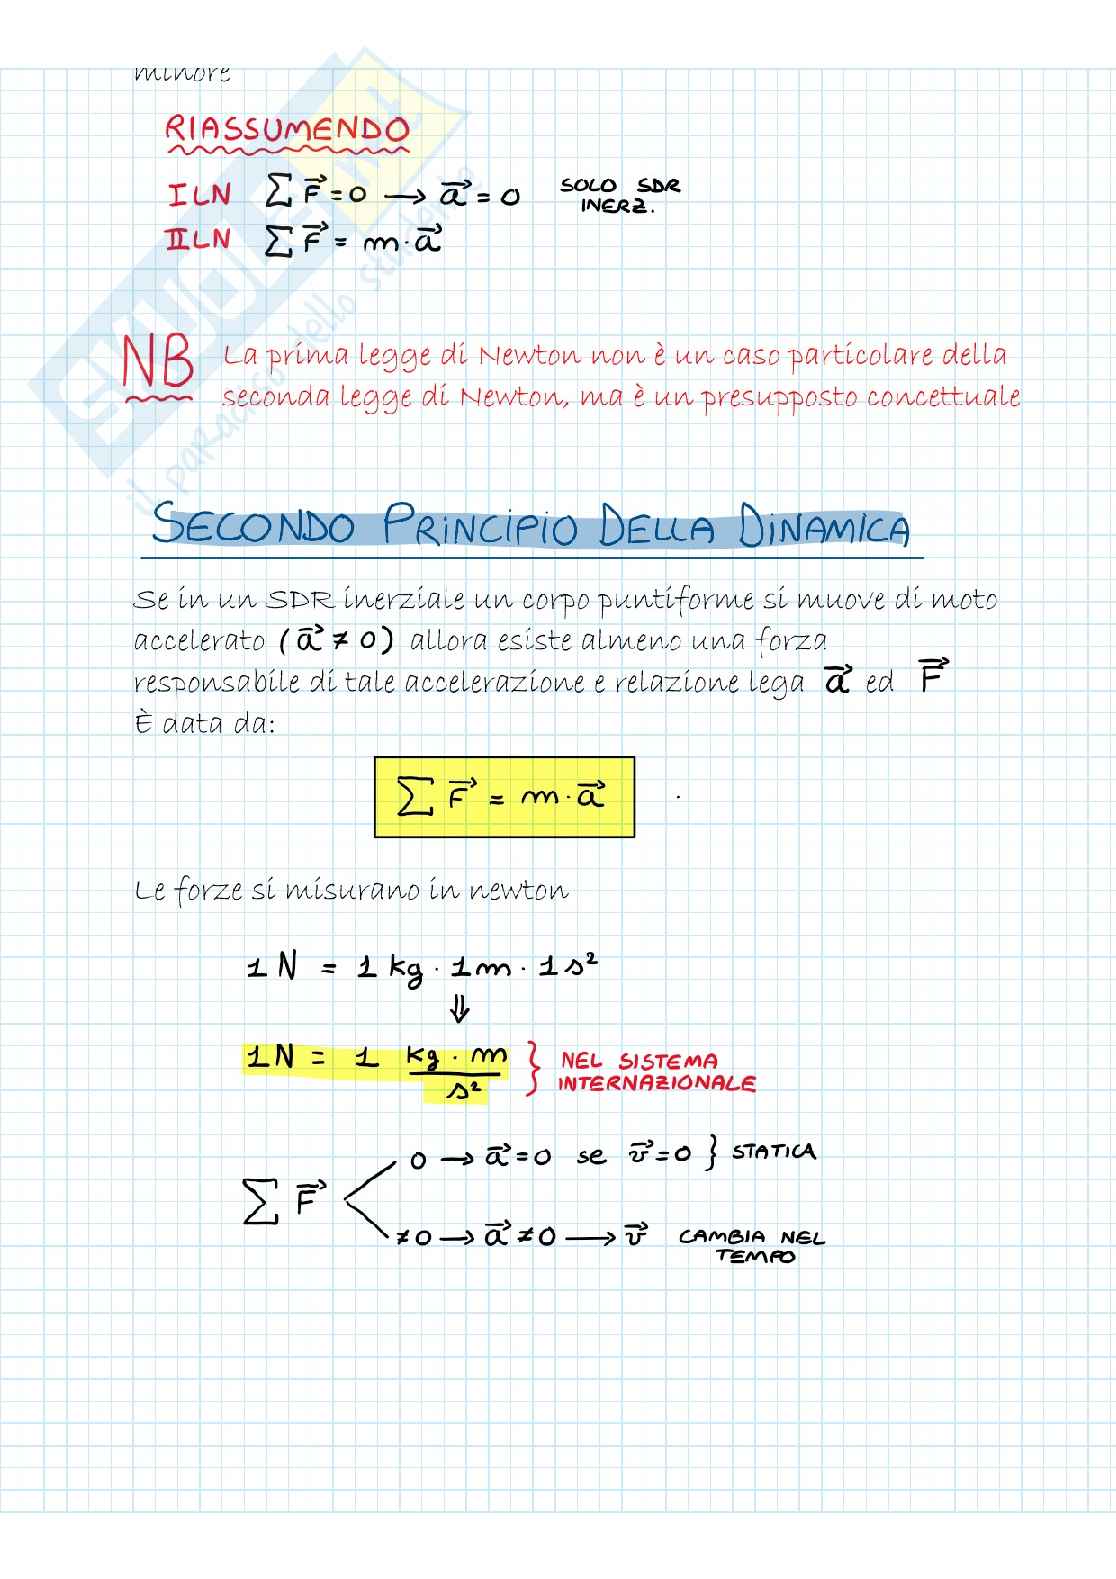 minore
RIASSUMENDO
I LN ∑ F⃗ = 0 → a⃗ = 0 SOLO SDR INERZ.
II LN ∑ F⃗ = m · a⃗
NB La prima legge di Newton non è un caso particolare della
seconda legge di Newton, ma è un presupposto concettuale
SECONDO PRINCIPIO DELLA DINAMICA
Se in un SDR inerziale un corpo puntiforme si muove di moto
accelerato (a⃗ ≠ 0) allora esiste almeno una forza
responsabile di tale accelerazione e relazione lega a⃗ ed F⃗
È data da:
∑ F⃗ = m · a⃗
Le forze si misurano in newton
1 N = 1 kg · 1 m · 1 s²
⇓
1 N = 1 kg · m / s² } NEL SISTEMA INTERNAZIONALE
0 → a⃗ = 0 se v⃗ = 0 } STATICA
∑ F⃗
≠ 0 → a⃗ ≠ 0 → v⃗ CAMBIA NEL
TEMPO
SKUOLA.net
il paradiso dello studente